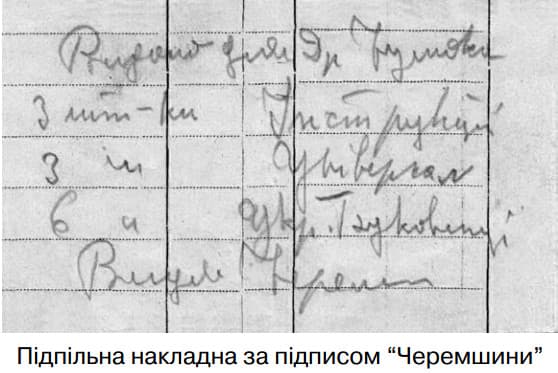 Видано для Др
3 шт-ки Інструкції
3 " Універсал
6 " Укр. Буковинці
Видав Черемш
Підпільна накладна за підписом “Черемшини”